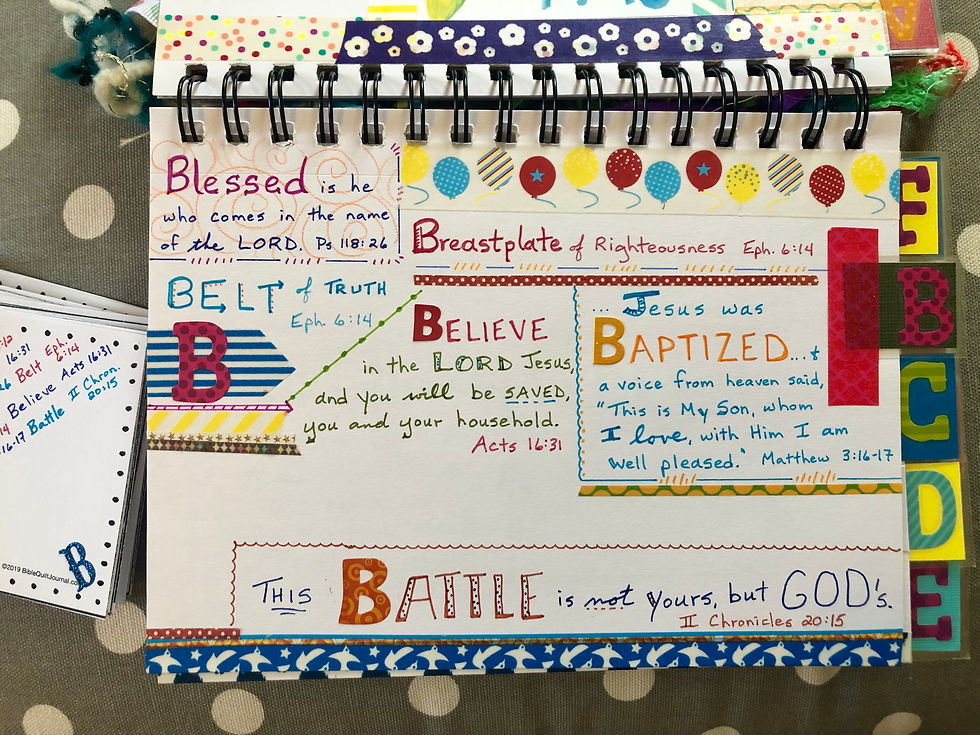 Blessed is he
who comes in the name
of the LORD. Ps 118:26
Breastplate of Righteousness Eph. 6:14
BELT of TRUTH
Eph. 6:14
B
BELIEVE
in the LORD Jesus,
and you will be SAVED,
you and your household.
Acts 16:31
... Jesus was
BAPTIZED...&
a voice from heaven said,
"This is My Son, whom
I love, with Him I am
well pleased." Matthew 3:16-17
THIS BATTLE is not yours, but GOD's.
II Chronicles 20:15
B
C
D
E
16:31
Belt Eph. 6:14
Believe Acts 16:31
Battle II Chron. 20:15
16-17
B
©2019 BibleQuiltJournal.co